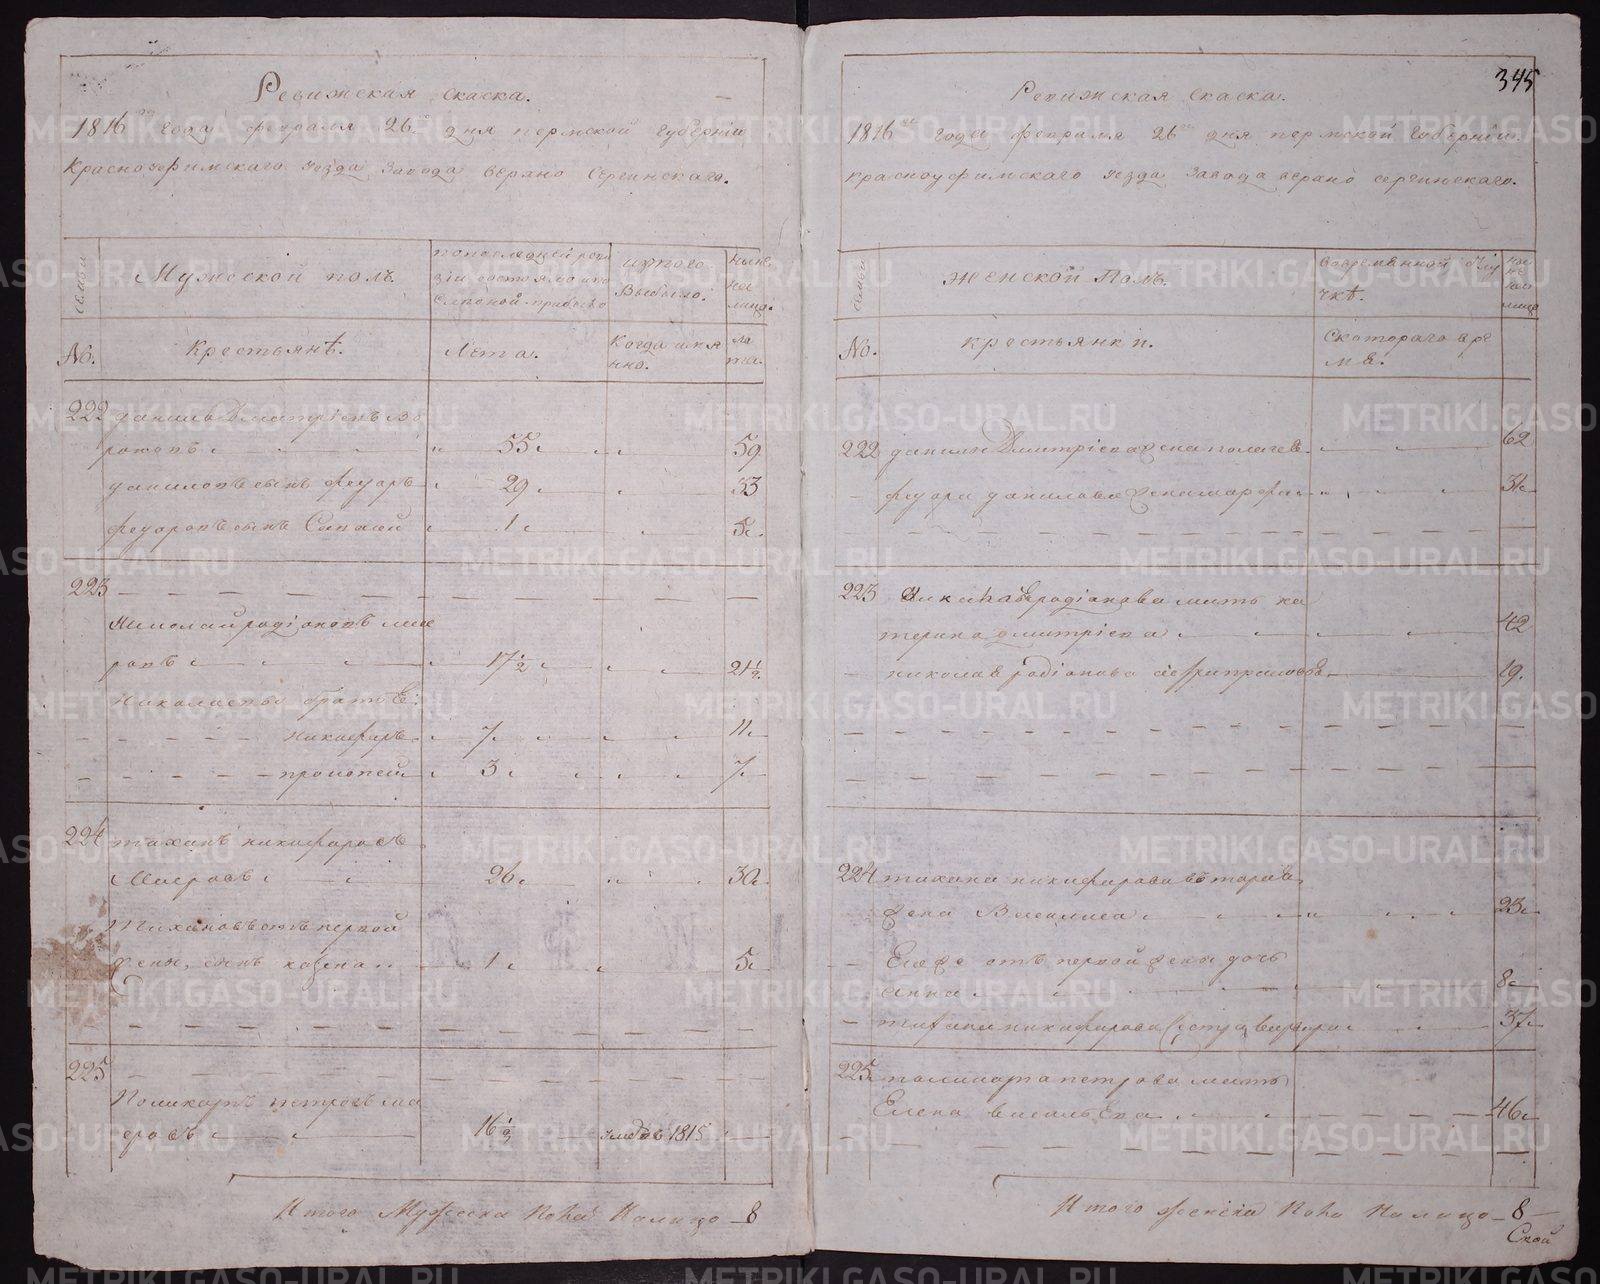 Ревижская скаска.
1816го года февраля 26го дня пермской губернiи
Красноуфимского уезда завода верхно Сергинскаго.
семьи
Мужеской полъ.
попоследней реви
зiи состояло ипо
слѣ оной прибыло
изтого
Выбыло.
ныне
на
лицо.
No.
крестьянѣ.
Лѣта.
Когда имя
нно.
ле
та.
222 данило Дмитрiевъ
55 59
даниловъ сынъ федоръ 29 33
федоровъ сынъ 1 5
223
Николай родiоновъ
17½ 21½
Николаевы братьѣ:
никифоръ 7 11
прокопей 3 7
224 тиханъ никифоровъ
26 30
Тихановъ отъ первой
жены, сынъ козма 1 5
225
Поликарпъ петровъ ма
еровъ 16½ умеръ в 1815
Итого Мужеска пола налицо – 8
345
Ревижская скаска.
1816го года февраля 26го дня пермской губернiи
красноуфимскаго уезда завода верхно сергинскаго.
семьи
Женской Полъ.
вовременной отлу
чкѣ.
ны
не
на
лицо
No.
крестьянки.
Скотораго вре
мя.
222 данила Дмитрiева жена 62
федора данилова жена марфа
223 родiонова мать ка
терина дмитрiева 42
николая родiонова 19.
224 тихана никифорова вторая
жена Василиса 23
Егоже отъ первой жены дочь
анна 8
никифорова сестра варвара 37
225 поликарпа петрова мать
Елена васильева 46
Итого женска пола налицо – 8
METRIKI.GASO-URAL.RU